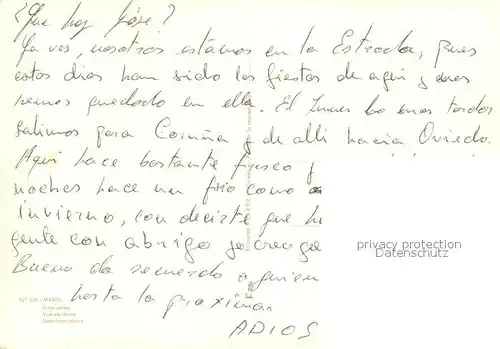 ¿Que hay Jóse?
Ya ves, nosotros estamos en la Estrada, pues
estos dias han sido las fiestas de aqui y nos
hemos quedado en ella. El lunes lo mas tardar
salimos para Coruña y de alli hacia Oviedo.
Aqui hace bastante fresco y
noches hace un frio como
invierno, con decirte que h
gente con abrigo ya creo que
Bueno da recuerdo a quien
hasta la proxima.
ADIOS
privacy protection
Datenschutz
MARIN
Vista aérea